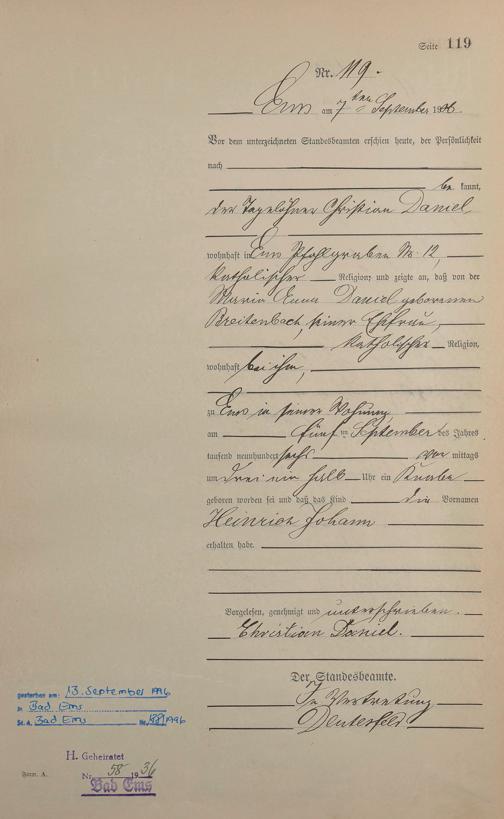 Seite 119
Nr. 119.
Ems am 7ten September 1906.
Vor dem unterzeichneten Standesbeamten erschien heute, der Persönlichkeit
nach
be kannt,
der Tagelöhner Christian Daniel,
wohnhaft in Ems Pfahlgraben Nr. 12,
katholischer Religion, und zeigte an, daß von der
Maria Anna Daniel geborenen
Breitenbach, seiner Ehefrau,
katholischer Religion,
wohnhaft bei ihm,
zu Ems in seiner Wohnung,
am fünften September des Jahres
tausend neunhundert sechs vor mittags
um drei ein halb Uhr ein Knabe
geboren worden sei und daß das Kind die Vornamen
Heinrich Johann
erhalten habe.
Vorgelesen, genehmigt und unterschrieben.
Christian Daniel.
Der Standesbeamte.
In Vertretung
gestorben am: 13. September 1996
in Bad Ems
St. A. Bad Ems Nr. /1996
H. Geheiratet
Nr. 58 1936
Bad Ems
Form. A.